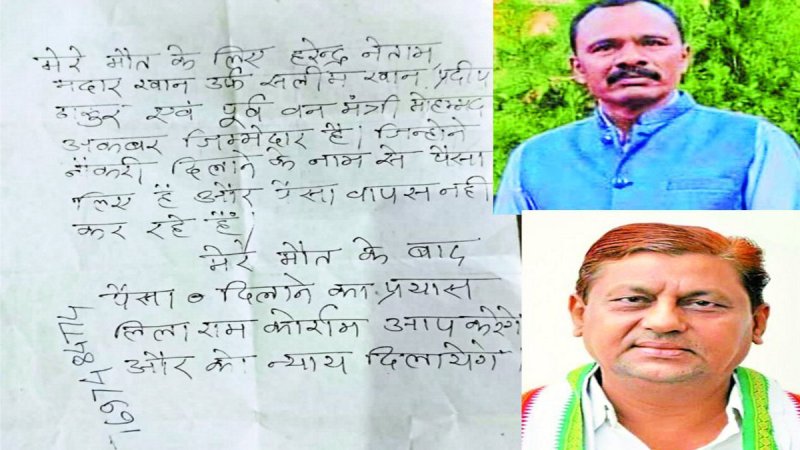 मेरे मौत के लिए हरेन्द्र नेताम,
मदार खान उर्फ सलीम खान, प्रदीप
ठाकुर एवं पूर्व वन मंत्री मोहम्मद
अकबर जिम्मेदार हैं। जिन्होने
नौकरी दिलाने के नाम से पैसा
लिए हैं और पैसा वापस नही
कर रहे हैं।
मेरे मौत के बाद
पैसा दिलाने का प्रयास
लिलाराम कोर्राम आप करेंगे
और को न्याय दिलायेगे